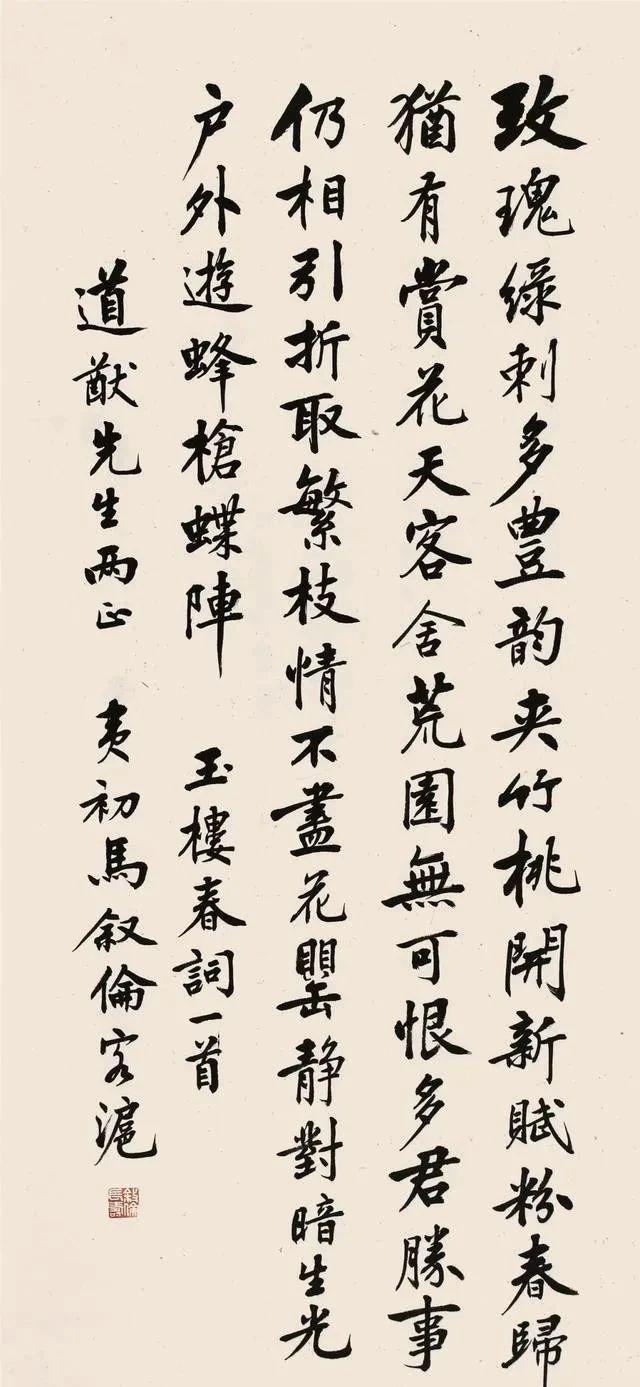 玫瑰緑刺多豊韵夾竹桃開新賦粉春歸
猶有賞花天客舍荒園無可恨多君勝事
仍相引折取繁枝情不盡花罌静對暗生光
户外遊蜂槍蝶陣 玉樓春詞一首
道猷先生兩正 夷初馬叙倫客滬